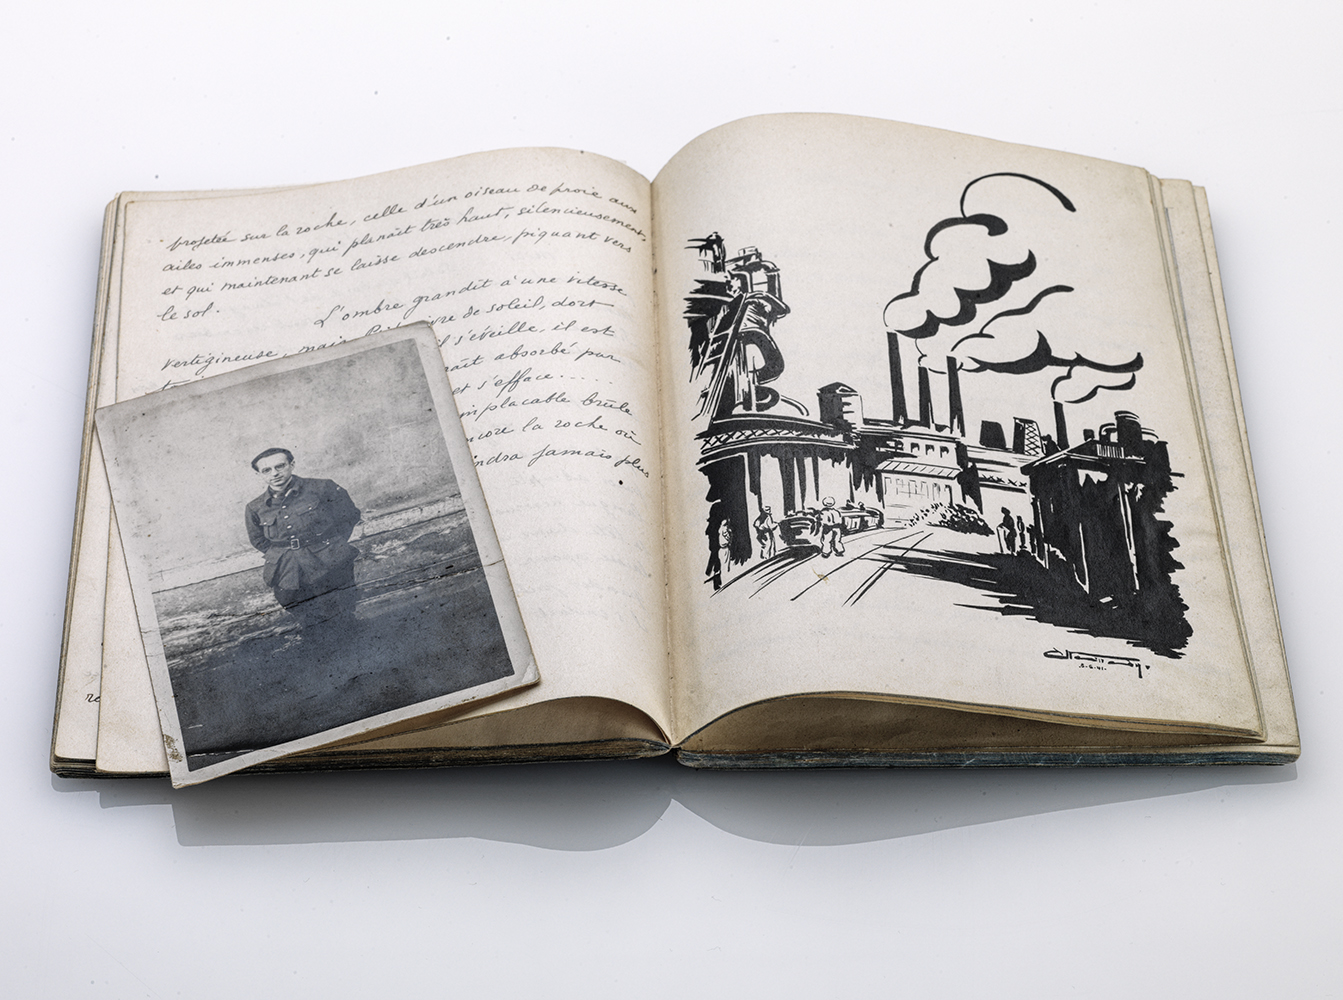 projetée sur la roche, celle d'un oiseau de proie aux
ailes immenses, qui planait très haut, silencieusement,
et qui maintenant se laisse descendre, piquant vers
le sol.
L'ombre grandit à une vitesse
vertigineuse, mais ivre de soleil, dort
s'éveille, il est
absorbé par
et s'efface.....
implacable brûle
encore la roche où
jamais plus
5.6.41.